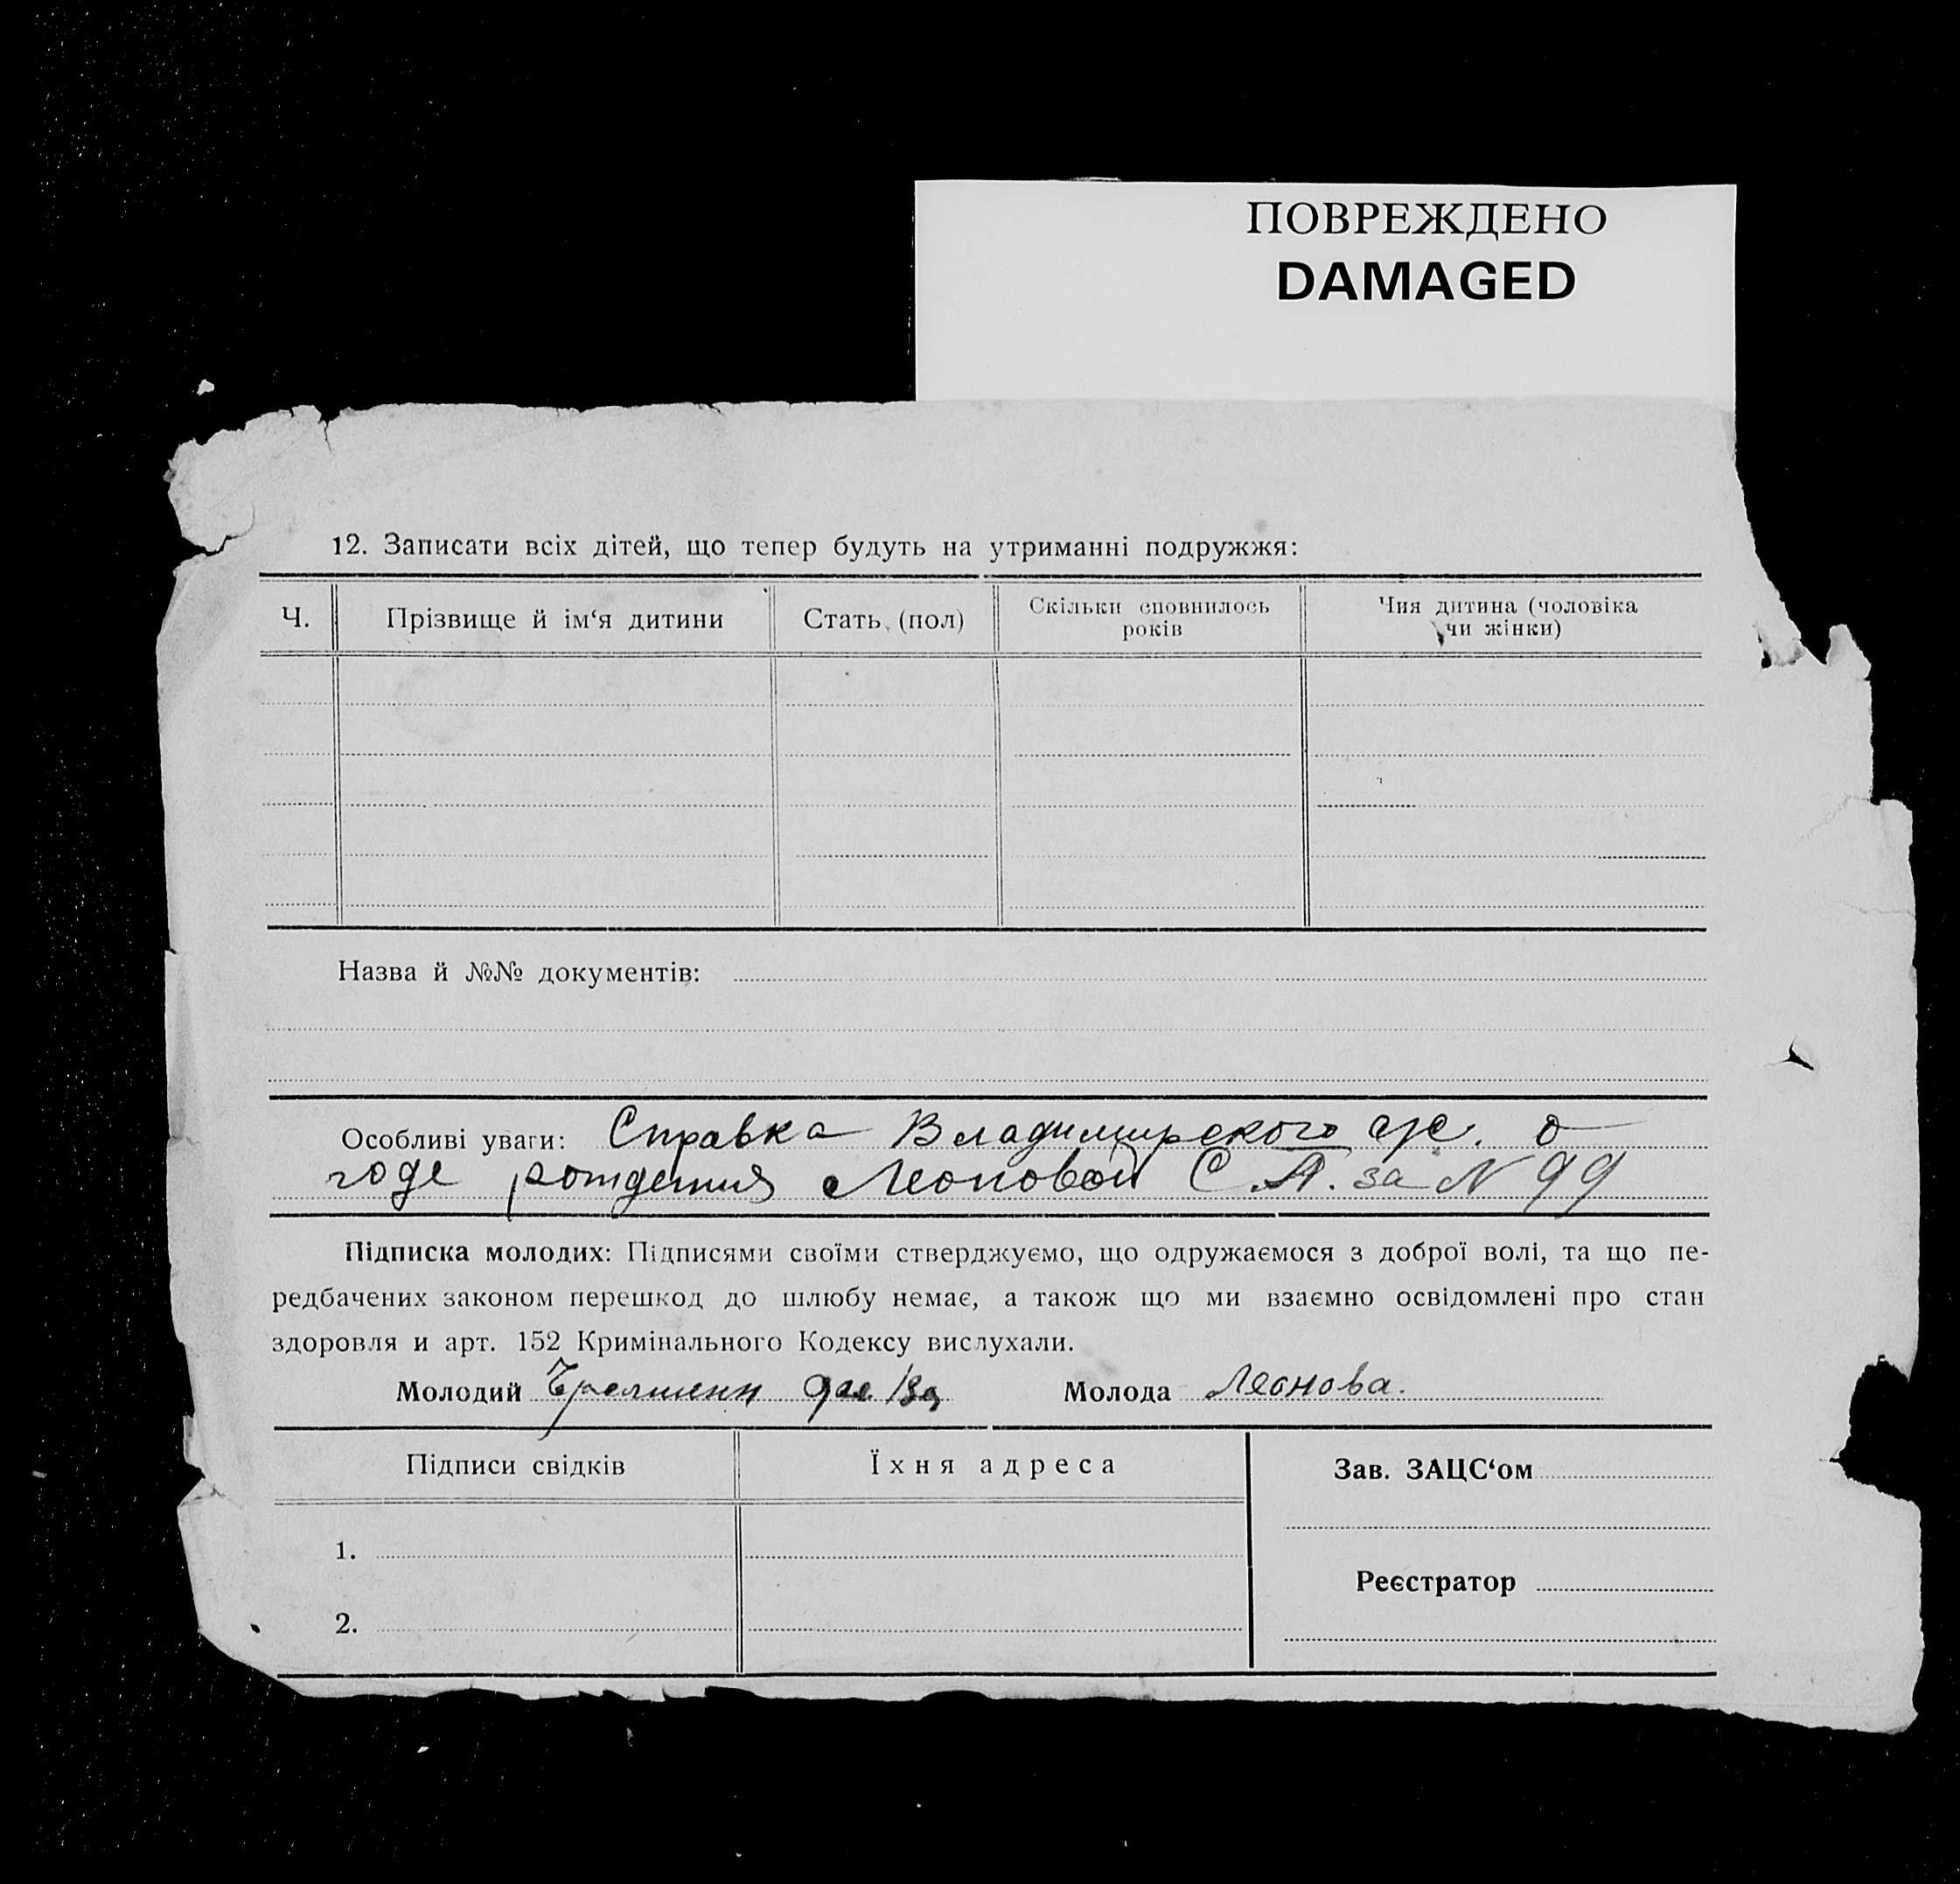 ПОВРЕЖДЕНО
DAMAGED
12. Записати всіх дітей, що тепер будуть на утриманні подружжя:
Ч. Прізвище й ім‘я дитини Стать (пол) Скільки сповнилось років Чия дитина (чоловіка чи жінки)
Назва й №№ документів:
Особливі уваги: Справка Владимирского с/с. о
годе рождения Леоновой С.А. за N 99
Підписка молодих: Підписями своїми стверджуємо, що одружаємося з доброї волі, та що пе-
редбачених законом перешкод до шлюбу немає, а також що ми взаємно освідомлені про стан
здоровля и арт. 152 Кримінального Кодексу вислухали.
Молодий Молода Леонова.
Підписи свідків Їхня адреса Зав. ЗАЦС‘ом
1.
Реєстратор
2.